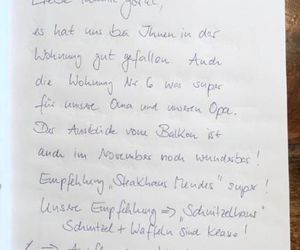 Liebe Familie
es hat uns bei Ihnen in der
Wohnung gut gefallen. Auch
die Wohnung Nr 6 war super
für unsere Oma und unseren Opa.
Der Ausblick vom Balkon ist
auch im November noch wunderbar!
Empfehlung „Steakhaus Mendes" super!
Unsere Empfehlung ⇒ „Schnitzelhaus"
Schnitzel + Waffeln sind klasse!